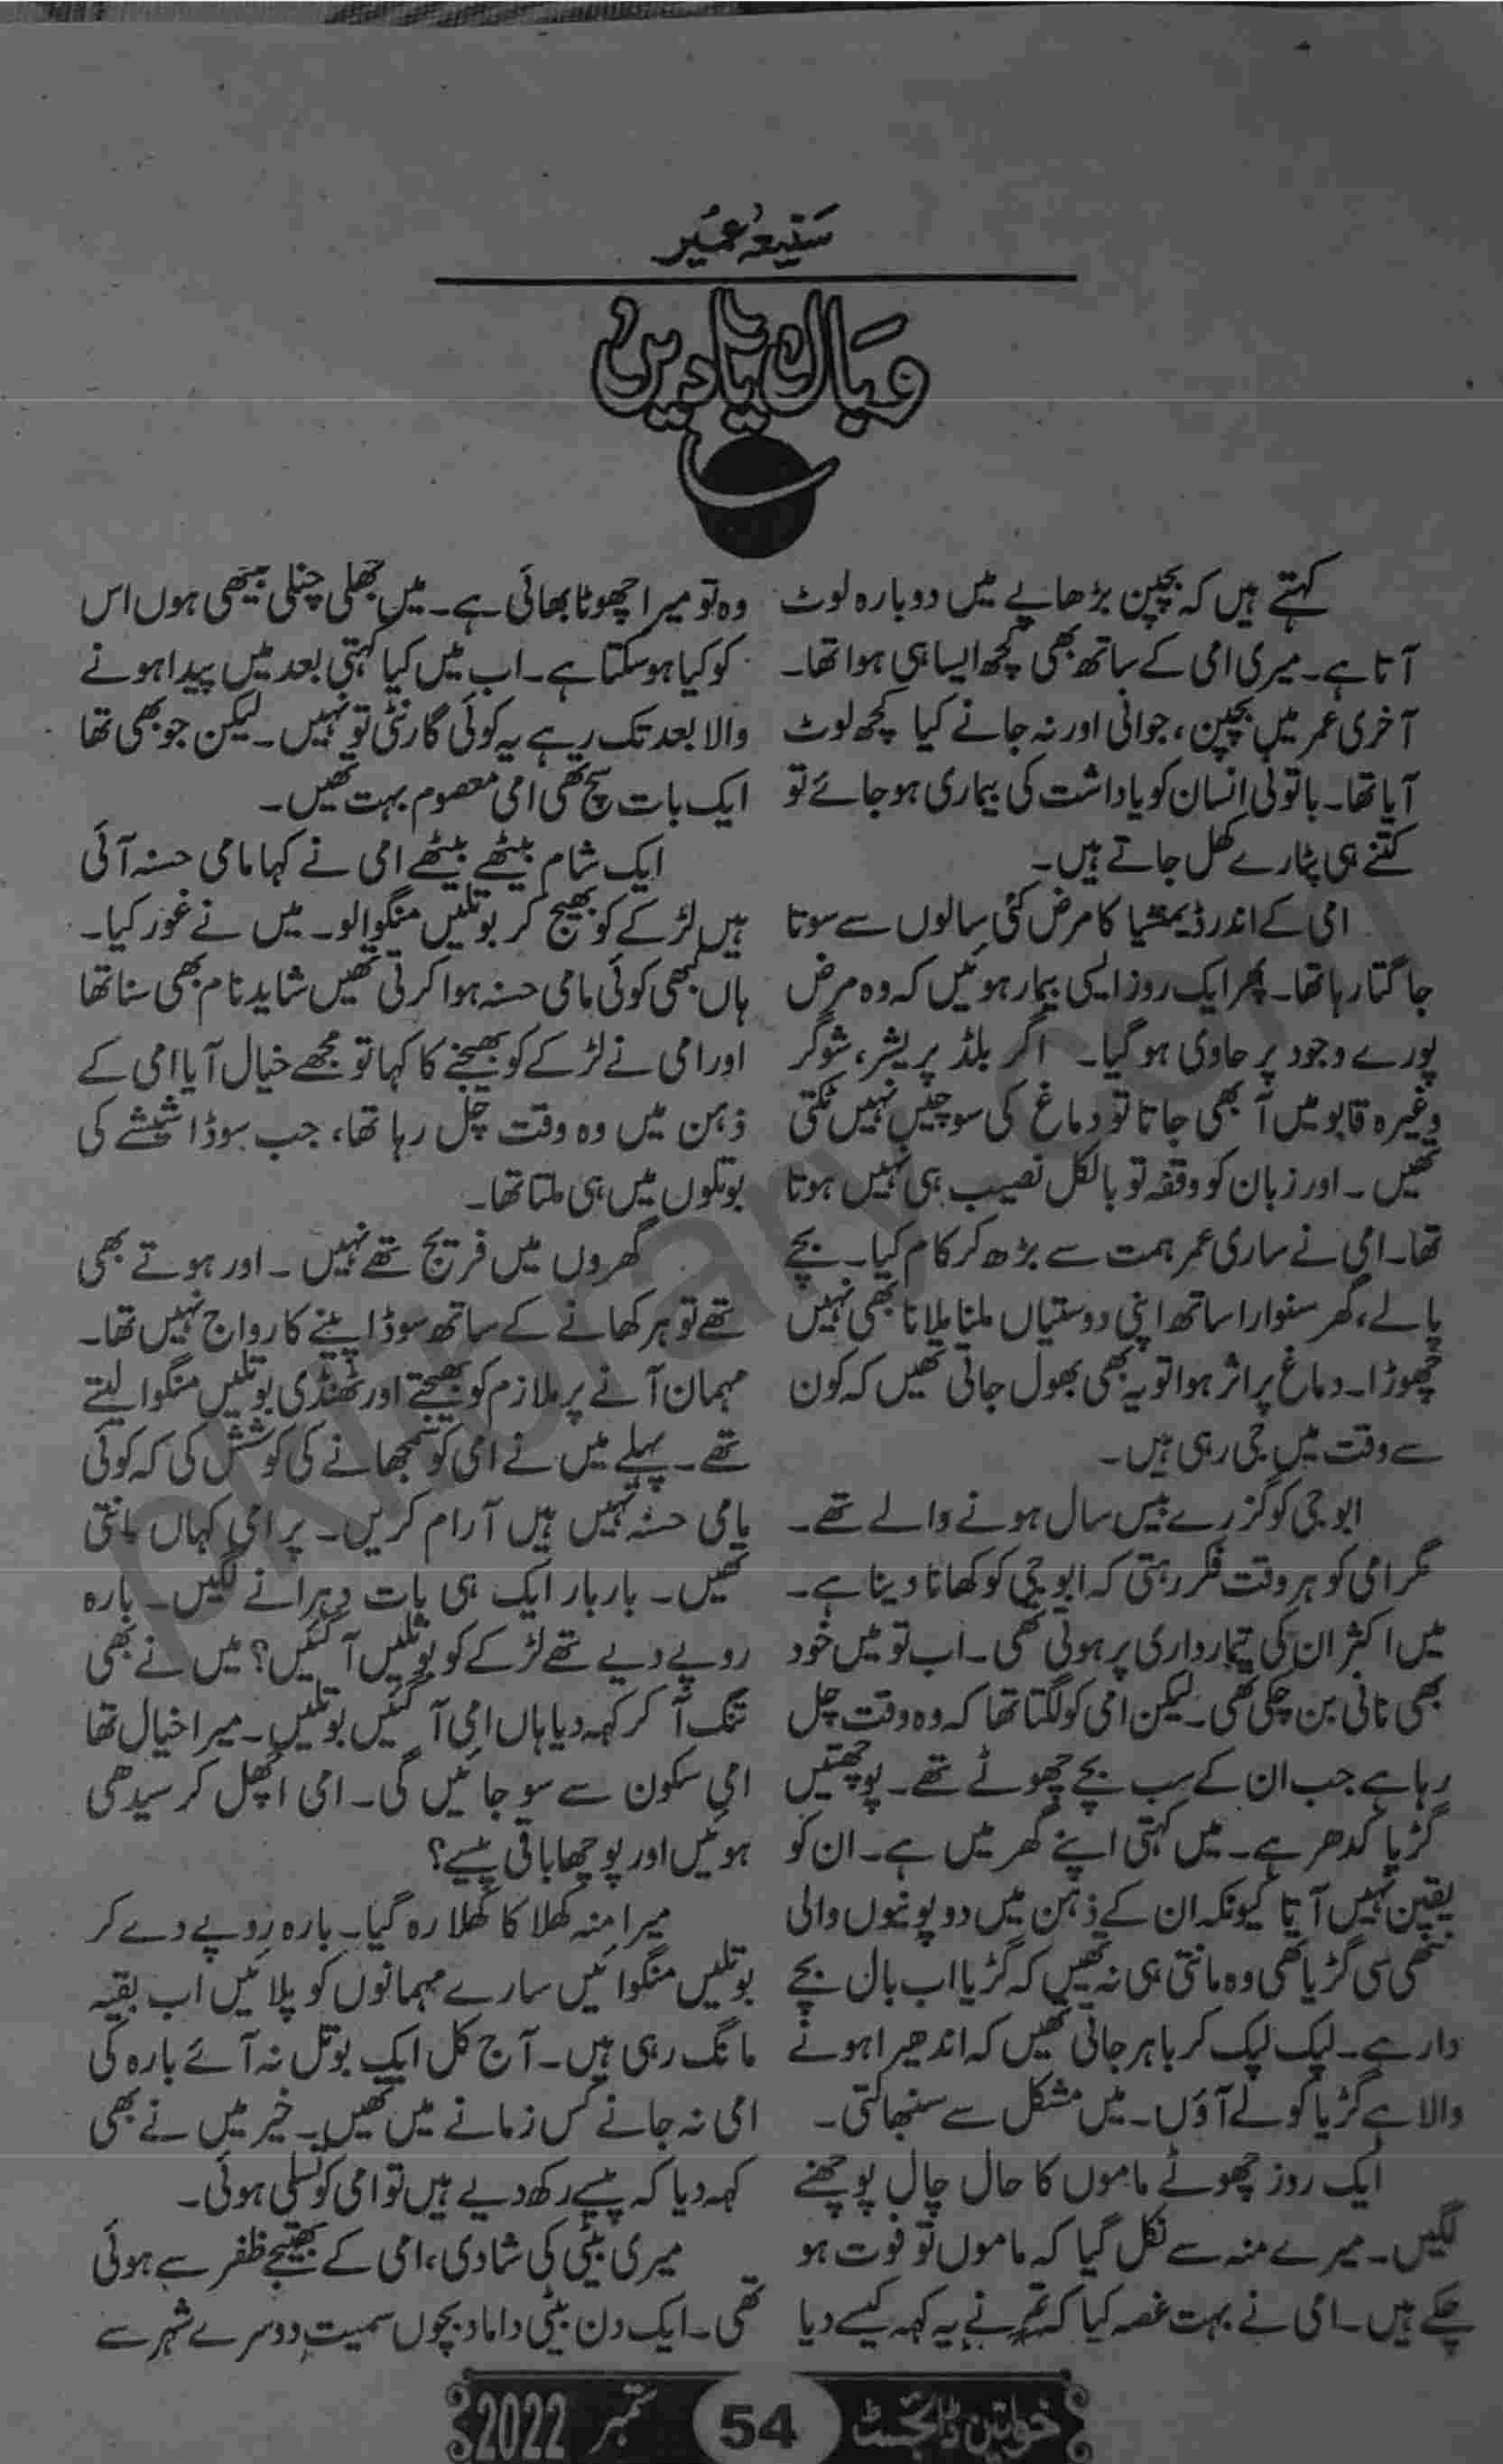 سنیعہ عمیر
وبالِ یادیں
کہتے ہیں کہ بچپن بڑھاپے میں دوبارہ لوٹ
آتا ہے۔ میری امی کے ساتھ بھی کچھ ایسا ہی ہوا تھا۔
آخری عمر میں بچپن، جوانی اور نہ جانے کیا کچھ لوٹ
آیا تھا۔ باتونی انسان کو یاداشت کی بیماری ہو جائے تو
کتنے ہی پٹارے کھل جاتے ہیں۔
امی کے اندر ڈیمنشیا کا مرض کئی سالوں سے سوتا
جاگتا رہا تھا۔ پھر ایک روز ایسی بیمار ہوئیں کہ وہ مرض
پورے وجود پر حاوی ہو گیا۔ اگر بلڈ پریشر، شوگر
وغیرہ قابو میں آ بھی جاتا تو دماغ کی سوچیں نہیں تھکتی
تھیں۔ اور زبان کو وقفہ تو بالکل نصیب ہی نہیں ہوتا
تھا۔ امی نے ساری عمر ہمت سے بڑھ کر کام کیا۔ بچے
پالے، گھر سنوارا ساتھ اپنی دوستیاں ملنا ملانا بھی نہیں
چھوڑا۔ دماغ پر اثر ہوا تو یہ بھی بھول جاتی تھیں کہ کون
سے وقت میں جی رہی ہیں۔
ابو جی کو گزرے بیس سال ہونے والے تھے۔
مگر امی کو ہر وقت فکر رہتی کہ ابو جی کو کھانا دینا ہے۔
میں اکثر ان کی تیمارداری پر ہوتی تھی۔ اب تو میں خود
بھی نانی بن چکی تھی۔ لیکن امی کو لگتا تھا کہ وہ وقت چل
رہا ہے جب ان کے سب بچے چھوٹے تھے۔ پوچھتیں
گڑیا کدھر ہے۔ میں کہتی اپنے گھر میں ہے۔ ان کو
یقین نہیں آتا کیونکہ ان کے ذہن میں دو پونیوں والی
ننھی سی گڑیا تھی وہ مانتی ہی نہ تھیں کہ گڑیا اب بال بچے
دار ہے۔ لپک لپک کر باہر جاتی تھیں کہ اندھیرا ہونے
والا ہے گڑیا کو لے آؤں۔ میں مشکل سے سنبھالتی۔
ایک روز چھوٹے ماموں کا حال چال پوچھنے
لگیں۔ میرے منہ سے نکل گیا کہ ماموں تو فوت ہو
چکے ہیں۔ امی نے بہت غصہ کیا کہ تم نے یہ کہہ کیسے دیا
وہ تو میرا چھوٹا بھائی ہے۔ میں بھلی چنگی بیٹھی ہوں اس
کو کیا ہو سکتا ہے۔ اب میں کیا کہتی بعد میں پیدا ہونے
والا بعد تک رہے یہ کوئی گارنٹی تو نہیں۔ لیکن جو بھی تھا
ایک بات سچ تھی امی معصوم بہت تھیں۔
ایک شام بیٹھے بیٹھے امی نے کہا مامی حسنہ آئی
ہیں لڑکے کو بھیج کر بوتلیں منگوا لو۔ میں نے غور کیا۔
ہاں کبھی کوئی مامی حسنہ ہوا کرتی تھیں شاید نام بھی سنا تھا
اور امی نے لڑکے کو بھیجنے کا کہا تو مجھے خیال آیا امی کے
ذہن میں وہ وقت چل رہا تھا، جب سوڈا شیشے کی
بوتلوں میں ہی ملتا تھا۔
گھروں میں فریج تھے نہیں۔ اور ہوتے بھی
تھے تو ہر کھانے کے ساتھ سوڈا پینے کا رواج نہیں تھا۔
مہمان آنے پر ملازم کو بھیجتے اور ٹھنڈی بوتلیں منگوا لیتے
تھے۔ پہلے میں نے امی کو سمجھانے کی کوشش کی کہ کوئی
مامی حسنہ نہیں ہیں آرام کریں۔ پر امی کہاں مانتی
تھیں۔ بار بار ایک ہی بات دہرانے لگیں۔ بارہ
روپے دیے تھے لڑکے کو بوتلیں آ گئیں؟ میں نے بھی
تنگ آ کر کہہ دیا ہاں امی آ گئیں بوتلیں۔ میرا خیال تھا
امی سکون سے سو جائیں گی۔ امی اچھل کر سیدھی
ہوئیں اور پوچھا باقی پیسے؟
میرا منہ کھلا کا کھلا رہ گیا۔ بارہ روپے دے کر
بوتلیں منگوائیں سارے مہمانوں کو پلائیں اب بقیہ
مانگ رہی ہیں۔ آج کل ایک بوتل نہ آئے بارہ کی
امی نہ جانے کس زمانے میں تھیں۔ خیر میں نے بھی
کہہ دیا کہ پیسے رکھ دیے ہیں تو امی کو تسلی ہوئی۔
میری بیٹی کی شادی، امی کے بھتیجے ظفر سے ہوئی
تھی۔ ایک دن بیٹی داماد بچوں سمیت دوسرے شہر سے
خواتین ڈائجسٹ 54 ستمبر 2022